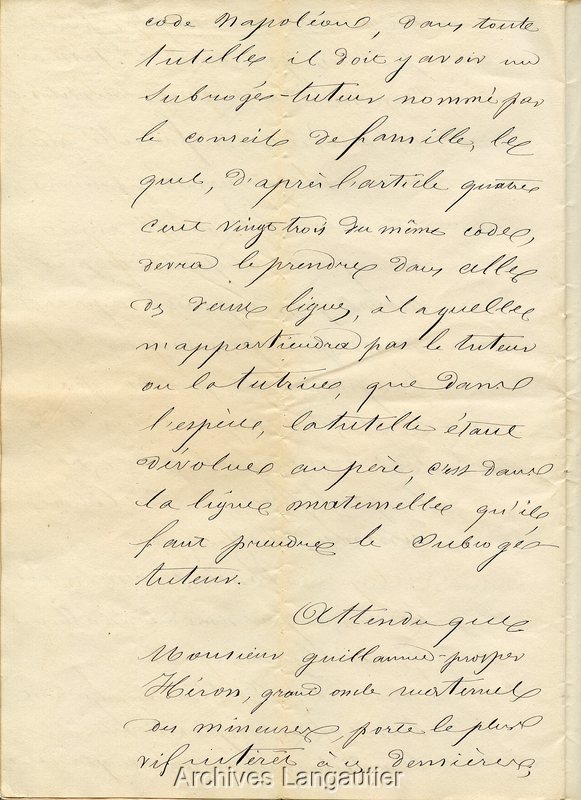 code Napoléon, dans toute
tutelle il doit y avoir un
subrogé-tuteur nommé par
le conseil de famille, le
quel, d'après l'article quatre
cent vingt trois du même code,
devra le prendre dans celle
des deux lignes, à laquelle
n'appartiendra pas le tuteur
ou la tutrice, que dans
l'espèce, la tutelle étant
dévolue au père, c'est dans
la ligne maternelle qu'il
faut prendre le subrogé-
tuteur.
Attendu que
Monsieur guillaume-prosper
Héron, grand oncle maternel
des mineures, porte le plus
vif intérêt à ces dernières,
Archives Langautier